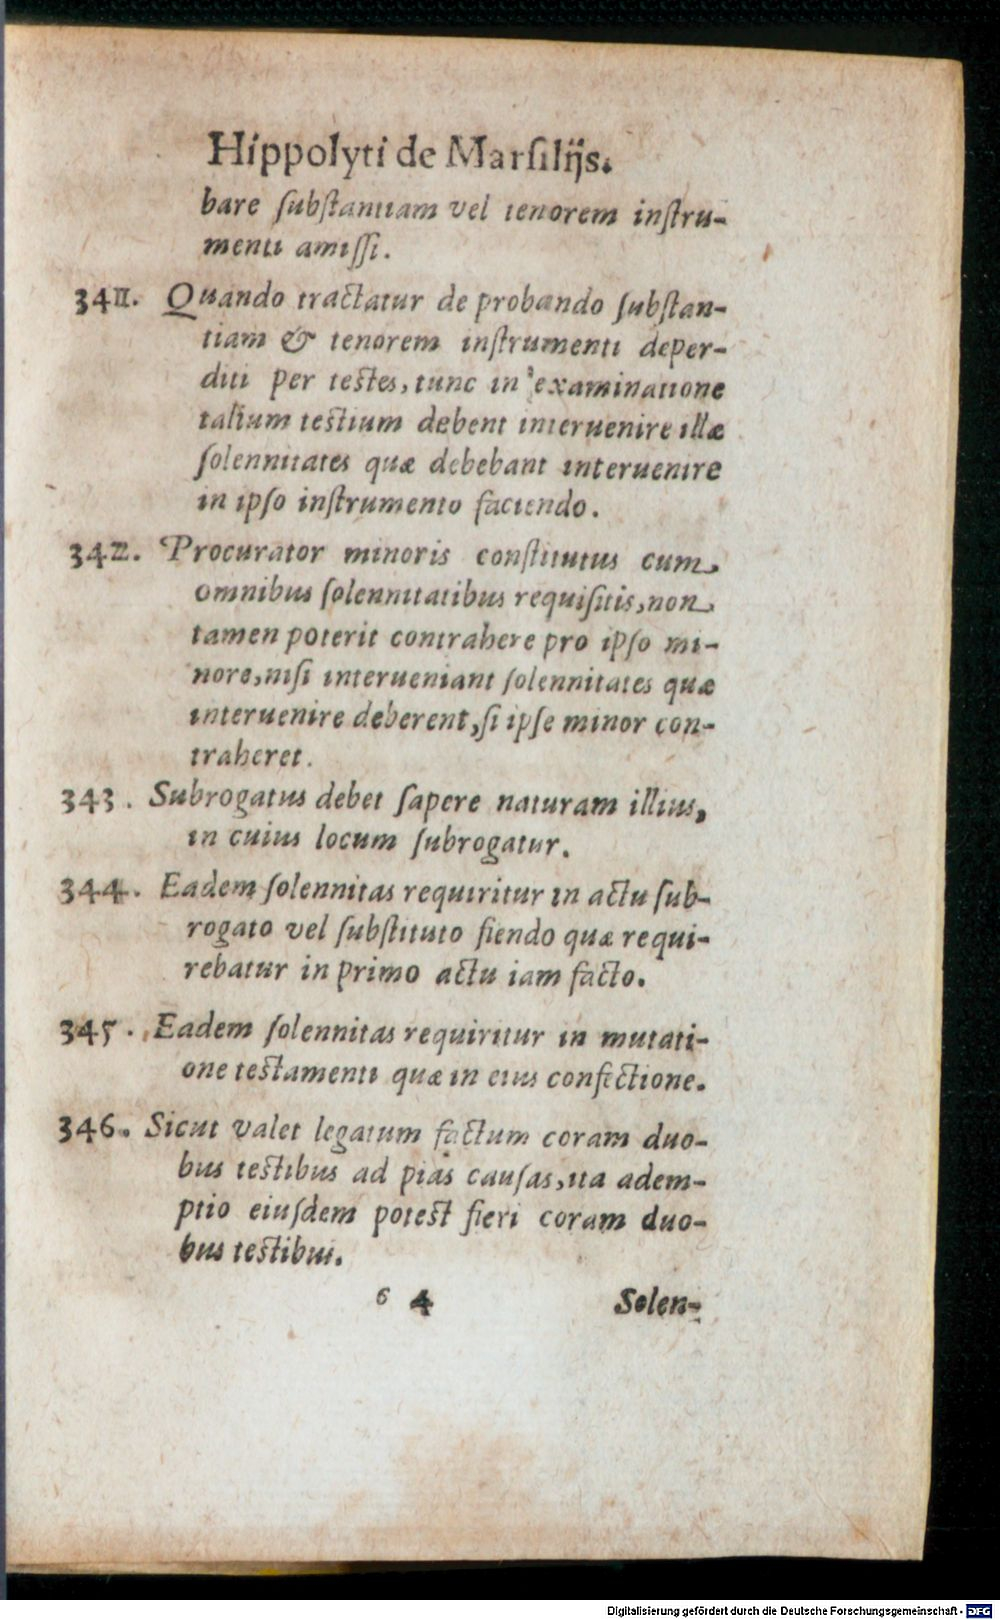 Hippolyti de Marſilijs.
bare ſubſtantiam vel tenorem inſtru-
menti amiſſi.
341. Quando tractatur de probando ſubſtan-
tiam & tenorem inſtrumenti deper-
diti per teſtes, tunc in examinatione
talium teſtium debent interuenire illæ
ſolennitates quæ debebant interuenire
in ipſo inſtrumento faciendo.
342. Procurator minoris conſtitutus cum
omnibus ſolennitatibus requiſitis, non
tamen poterit contrahere pro ipſo mi-
nore, niſi interueniant ſolennitates quæ
interuenire deberent, ſi ipſe minor con-
traheret.
343. Subrogatus debet ſapere naturam illius,
in cuius locum ſubrogatur.
344. Eadem ſolennitas requiritur in actu ſub-
rogato vel ſubſtituto fiendo quæ requi-
rebatur in primo actu iam facto.
345. Eadem ſolennitas requiritur in mutati-
one teſtamenti quæ in eius confectione.
346. Sicut valet legatum factum coram duo-
bus teſtibus ad pias cauſas, ita adem-
ptio eiuſdem poteſt fieri coram duo-
bus teſtibus.
6 4 Solen-
Digitalisierung gefördert durch die Deutsche Forschungsgemeinschaft - DFG